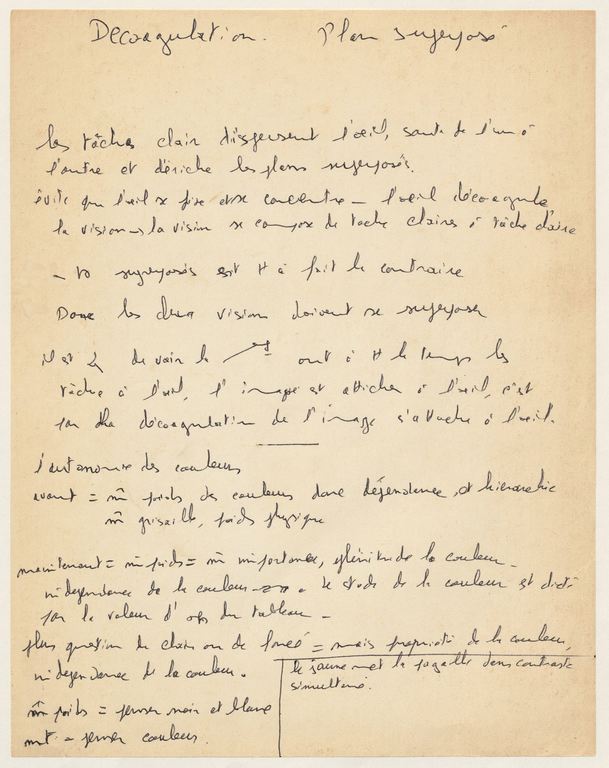 Decoagulation. Plan superposé
les tâches clair dispersent l'oeil, saute de l'un à
l'autre et déniche les plans superposés.
évite que l'oeil se fixe et se concentre — l'oeil décoagule
la vision → la vision se compose de tache claires à tâche claire
superposés est à fait le contraire
Donc les deux vision doivent se superposer
il est de voir le ont à tt le temps les
tâche à l'oeil, l'image est attachée à l'oeil, c'est
par décoagulation de l'image s'attache à l'oeil.
l'autonomie des couleurs
avant = m̂ poids des couleurs donc dépendance, et hierarchie
m̂ grisaille, poids physique
maintenant = m̂ poids = m̂ importance, plénitude de la couleur —
indépendance de la couleur le stade de la couleur est dicté
par la valeur d' du tableau —
plus question de clair ou de foncé = mais propriété de la couleur,
indépendance de la couleur.
le jaune et la dans contraste
simultané.
m̂ poids = penser noir et blanc
mt = penser couleur.